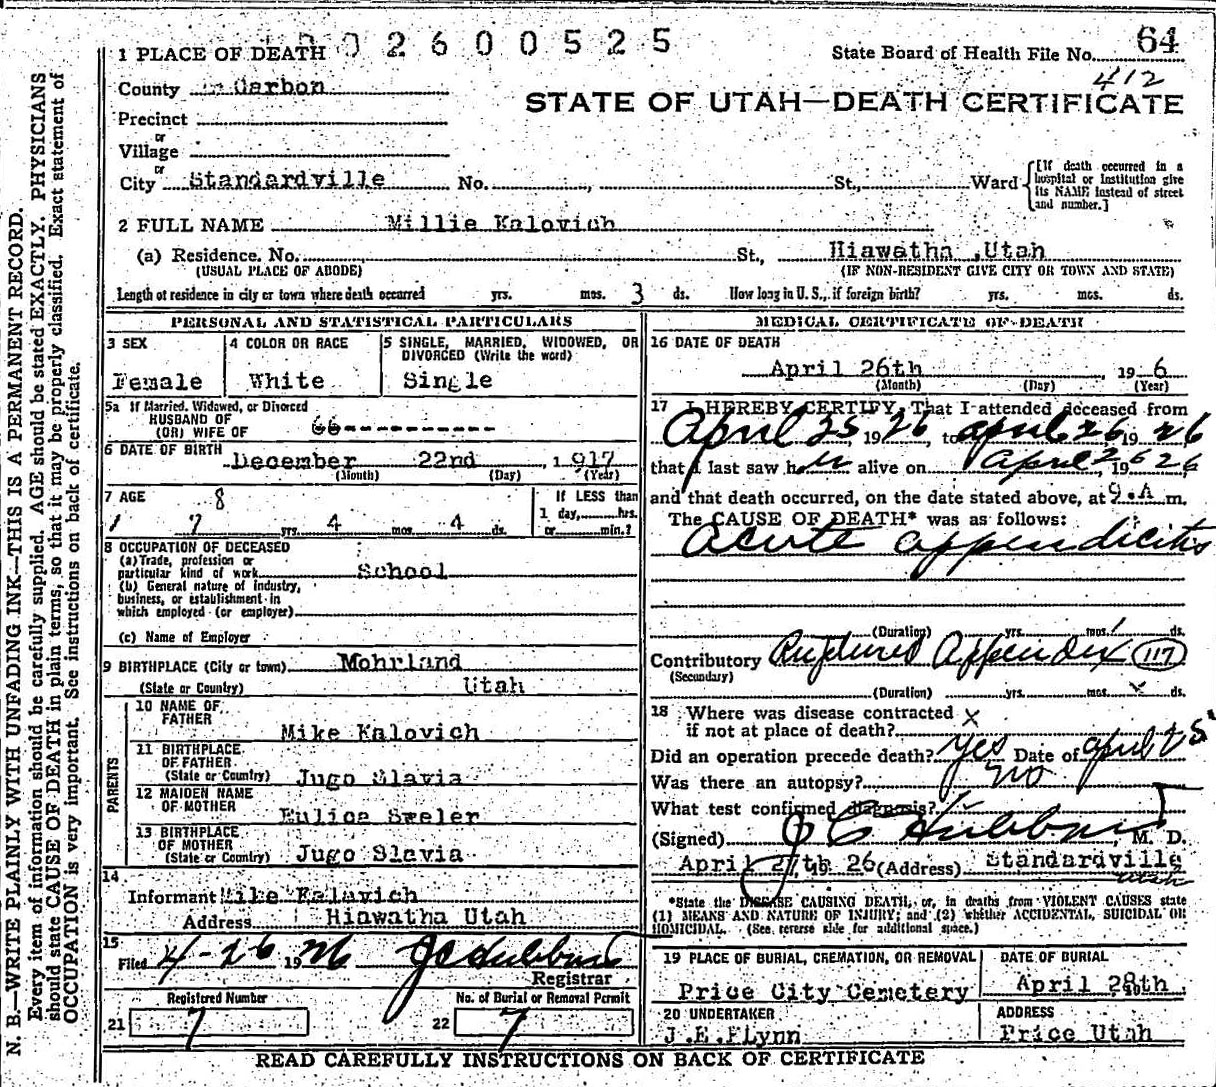 002600525
State Board of Health File No. 64
412
1 PLACE OF DEATH
County Carbon
STATE OF UTAH—DEATH CERTIFICATE
Precinct
or
Village
or
City Standardville No. , St., Ward [If death occurred in a hospital or Institution give its NAME instead of street and number.]
2 FULL NAME Millie Kalovich
(a) Residence. No. St., Hiawatha ,Utah
(USUAL PLACE OF ABODE) (IF NON-RESIDENT GIVE CITY OR TOWN AND STATE)
Length of residence in city or town where death occurred yrs. mos. 3 ds. How long in U. S., if foreign birth? yrs. mos. ds.
PERSONAL AND STATISTICAL PARTICULARS
3 SEX
Female
4 COLOR OR RACE
White
5 SINGLE, MARRIED, WIDOWED, OR DIVORCED (Write the word)
Single
5a If Married, Widowed, or Divorced
HUSBAND OF
(OR) WIFE OF
6 DATE OF BIRTH December 22nd , 1917
(Month) (Day) (Year)
7 AGE 8
7 yrs. 4 mos. 4 ds.
If LESS than
1 day, hrs.
or min.?
8 OCCUPATION OF DECEASED
(a) Trade, profession or
particular kind of work School
(b) General nature of industry,
business, or establishment in
which employed (or employer)
(c) Name of Employer
9 BIRTHPLACE (City or town) Mohrland
(State or Country) Utah
PARENTS
10 NAME OF FATHER Mike Kalovich
11 BIRTHPLACE OF FATHER (State or Country) Jugo Slavia
12 MAIDEN NAME OF MOTHER Eulica Sweler
13 BIRTHPLACE OF MOTHER (State or Country) Jugo Slavia
14
Informant Mike Kalavich
Address Hiawatha Utah
15
Filed 4-26 1926 J C Hubbard
Registrar
Registered Number
21 7
No. of Burial or Removal Permit
22 7
MEDICAL CERTIFICATE OF DEATH
16 DATE OF DEATH
April 26th , 19 6
(Month) (Day) (Year)
17 I HEREBY CERTIFY, That I attended deceased from
April 25 1926, to April 26 1926
that I last saw her alive on April 26 1926
and that death occurred, on the date stated above, at 9.A m.
The CAUSE OF DEATH* was as follows:
Acute appendicitis
(Duration) yrs. mos. 1 ds.
Contributory Ruptured Appendix 117
(Secondary)
(Duration) yrs. mos. x ds.
18 Where was disease contracted
if not at place of death? x
Did an operation precede death? yes Date of April 25
Was there an autopsy? no
What test confirmed diagnosis?
(Signed) J C Hubbard, M. D.
April 27th 19 26 (Address) Standardville
Utah
*State the DISEASE CAUSING DEATH, or, in deaths from VIOLENT CAUSES state
(1) MEANS AND NATURE OF INJURY; and (2) whether ACCIDENTAL, SUICIDAL OR
HOMICIDAL. (See reverse side for additional space.)
19 PLACE OF BURIAL, CREMATION, OR REMOVAL
Price City Cemetery
DATE OF BURIAL
April 28th
20 UNDERTAKER
J.E.Flynn
ADDRESS
Price Utah
READ CAREFULLY INSTRUCTIONS ON BACK OF CERTIFICATE
N. B.—WRITE PLAINLY WITH UNFADING INK—THIS IS A PERMANENT RECORD.
Every item of information should be carefully supplied. AGE should be stated EXACTLY. PHYSICIANS
should state CAUSE OF DEATH in plain terms, so that it may be properly classified. Exact statement of
OCCUPATION is very important. See instructions on back of certificate.